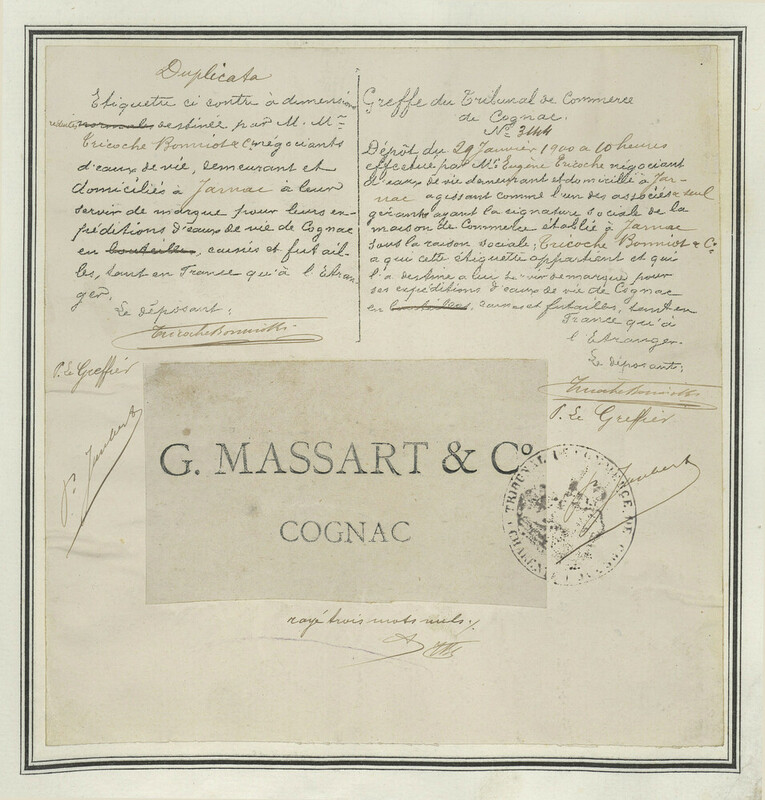 Duplicata
Etiquette ci contre à dimensions
réduites normales destinée par M. Mrs
Tricoche Bonniot & Cie négociants
d'eaux de vie, demeurant et
domiciliés à Jarnac à leur
servir de marque pour leurs ex-
péditions d'eaux de vie de Cognac
en bouteilles, caisses et futail-
les, tant en France qu'à l'Etran-
ger.
Le déposant:
Tricoche Bonniot & Co
P. Le Greffier
P. Jaubert
Greffe du Tribunal de Commerce
de Cognac.
No 3144
Dépôt du 29 Janvier 1900 a 10 heures
effectué par Mr Eugène Tricoche négociant
d'eaux de vie demeurant et domicilié à Jar-
nac agissant comme l'un des associés & seul
gérant ayant la signature sociale de la
maison de Commerce établie à Jarnac
sous la raison sociale: Tricoche Bonniot & Co
a qui cette étiquette appartient et qui
l'a destinée a lui servir de marque pour
ses expéditions d'eaux de vie de Cognac
en bouteilles, caisses et futailles, tant en
France qu'à
l'Etranger.
Le déposant:
Tricoche Bonniot & Co
P. Le Greffier
Jaubert
G. MASSART & Co
COGNAC
TRIBUNAL DE COMMERCE DE COGNAC
rayé trois mots nuls